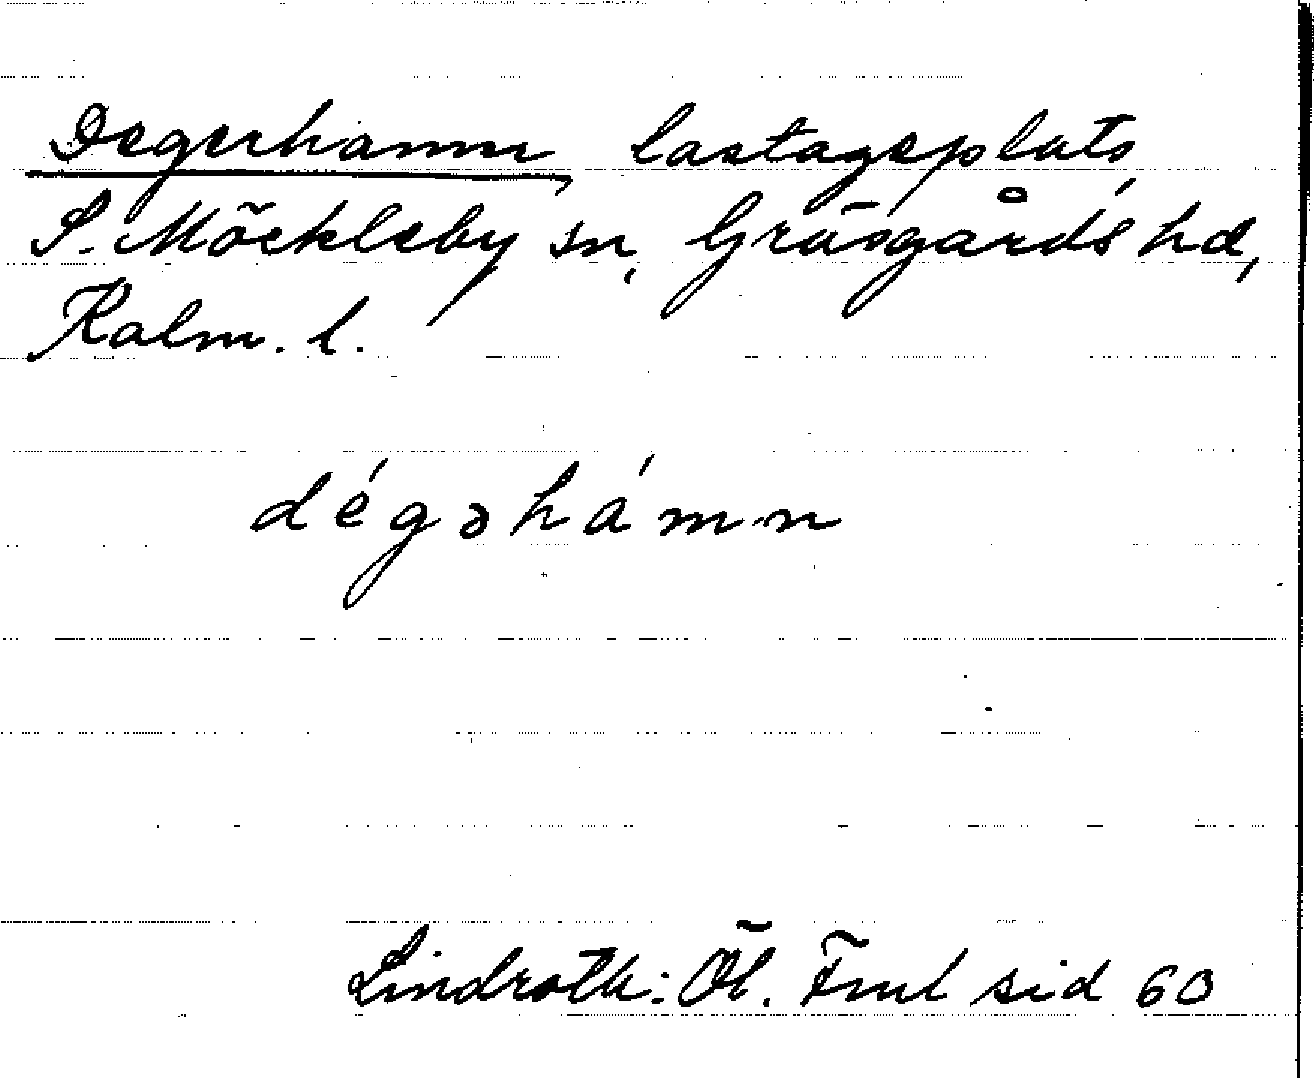 Degerhamn, lastageplats,
S. Möckleby sn, Gräsgårds hd,
Kalm. l.
dégəhámn
Lindroth: Öl. Fml sid 60